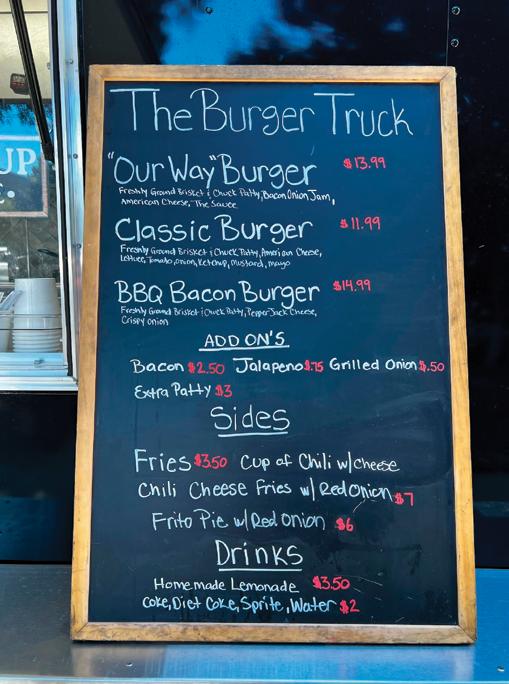 UP
The Burger Truck
"Our Way" Burger $13.99
Freshly Ground Brisket & Chuck Patty, Bacon Onion Jam,
American Cheese, "The Sauce
Classic Burger $11.99
Freshly Ground Brisket & Chuck Patty, American Cheese,
Lettuce, Tomato, onion, Ketchup, mustard, mayo
BBQ Bacon Burger $14.99
Freshly Ground Brisket & Chuck Patty, Pepper Jack Cheese,
Crispy onion
ADD ON'S
Bacon $2.50 Jalapeno $.75 Grilled Onion $.50
Extra Patty $3
Sides
Fries $3.50 Cup of Chili w/cheese
Chili Cheese Fries w/ Red Onion $7
Frito Pie w/ Red Onion $6
Drinks
Homemade Lemonade $3.50
Coke, Diet Coke, Sprite, Water $2